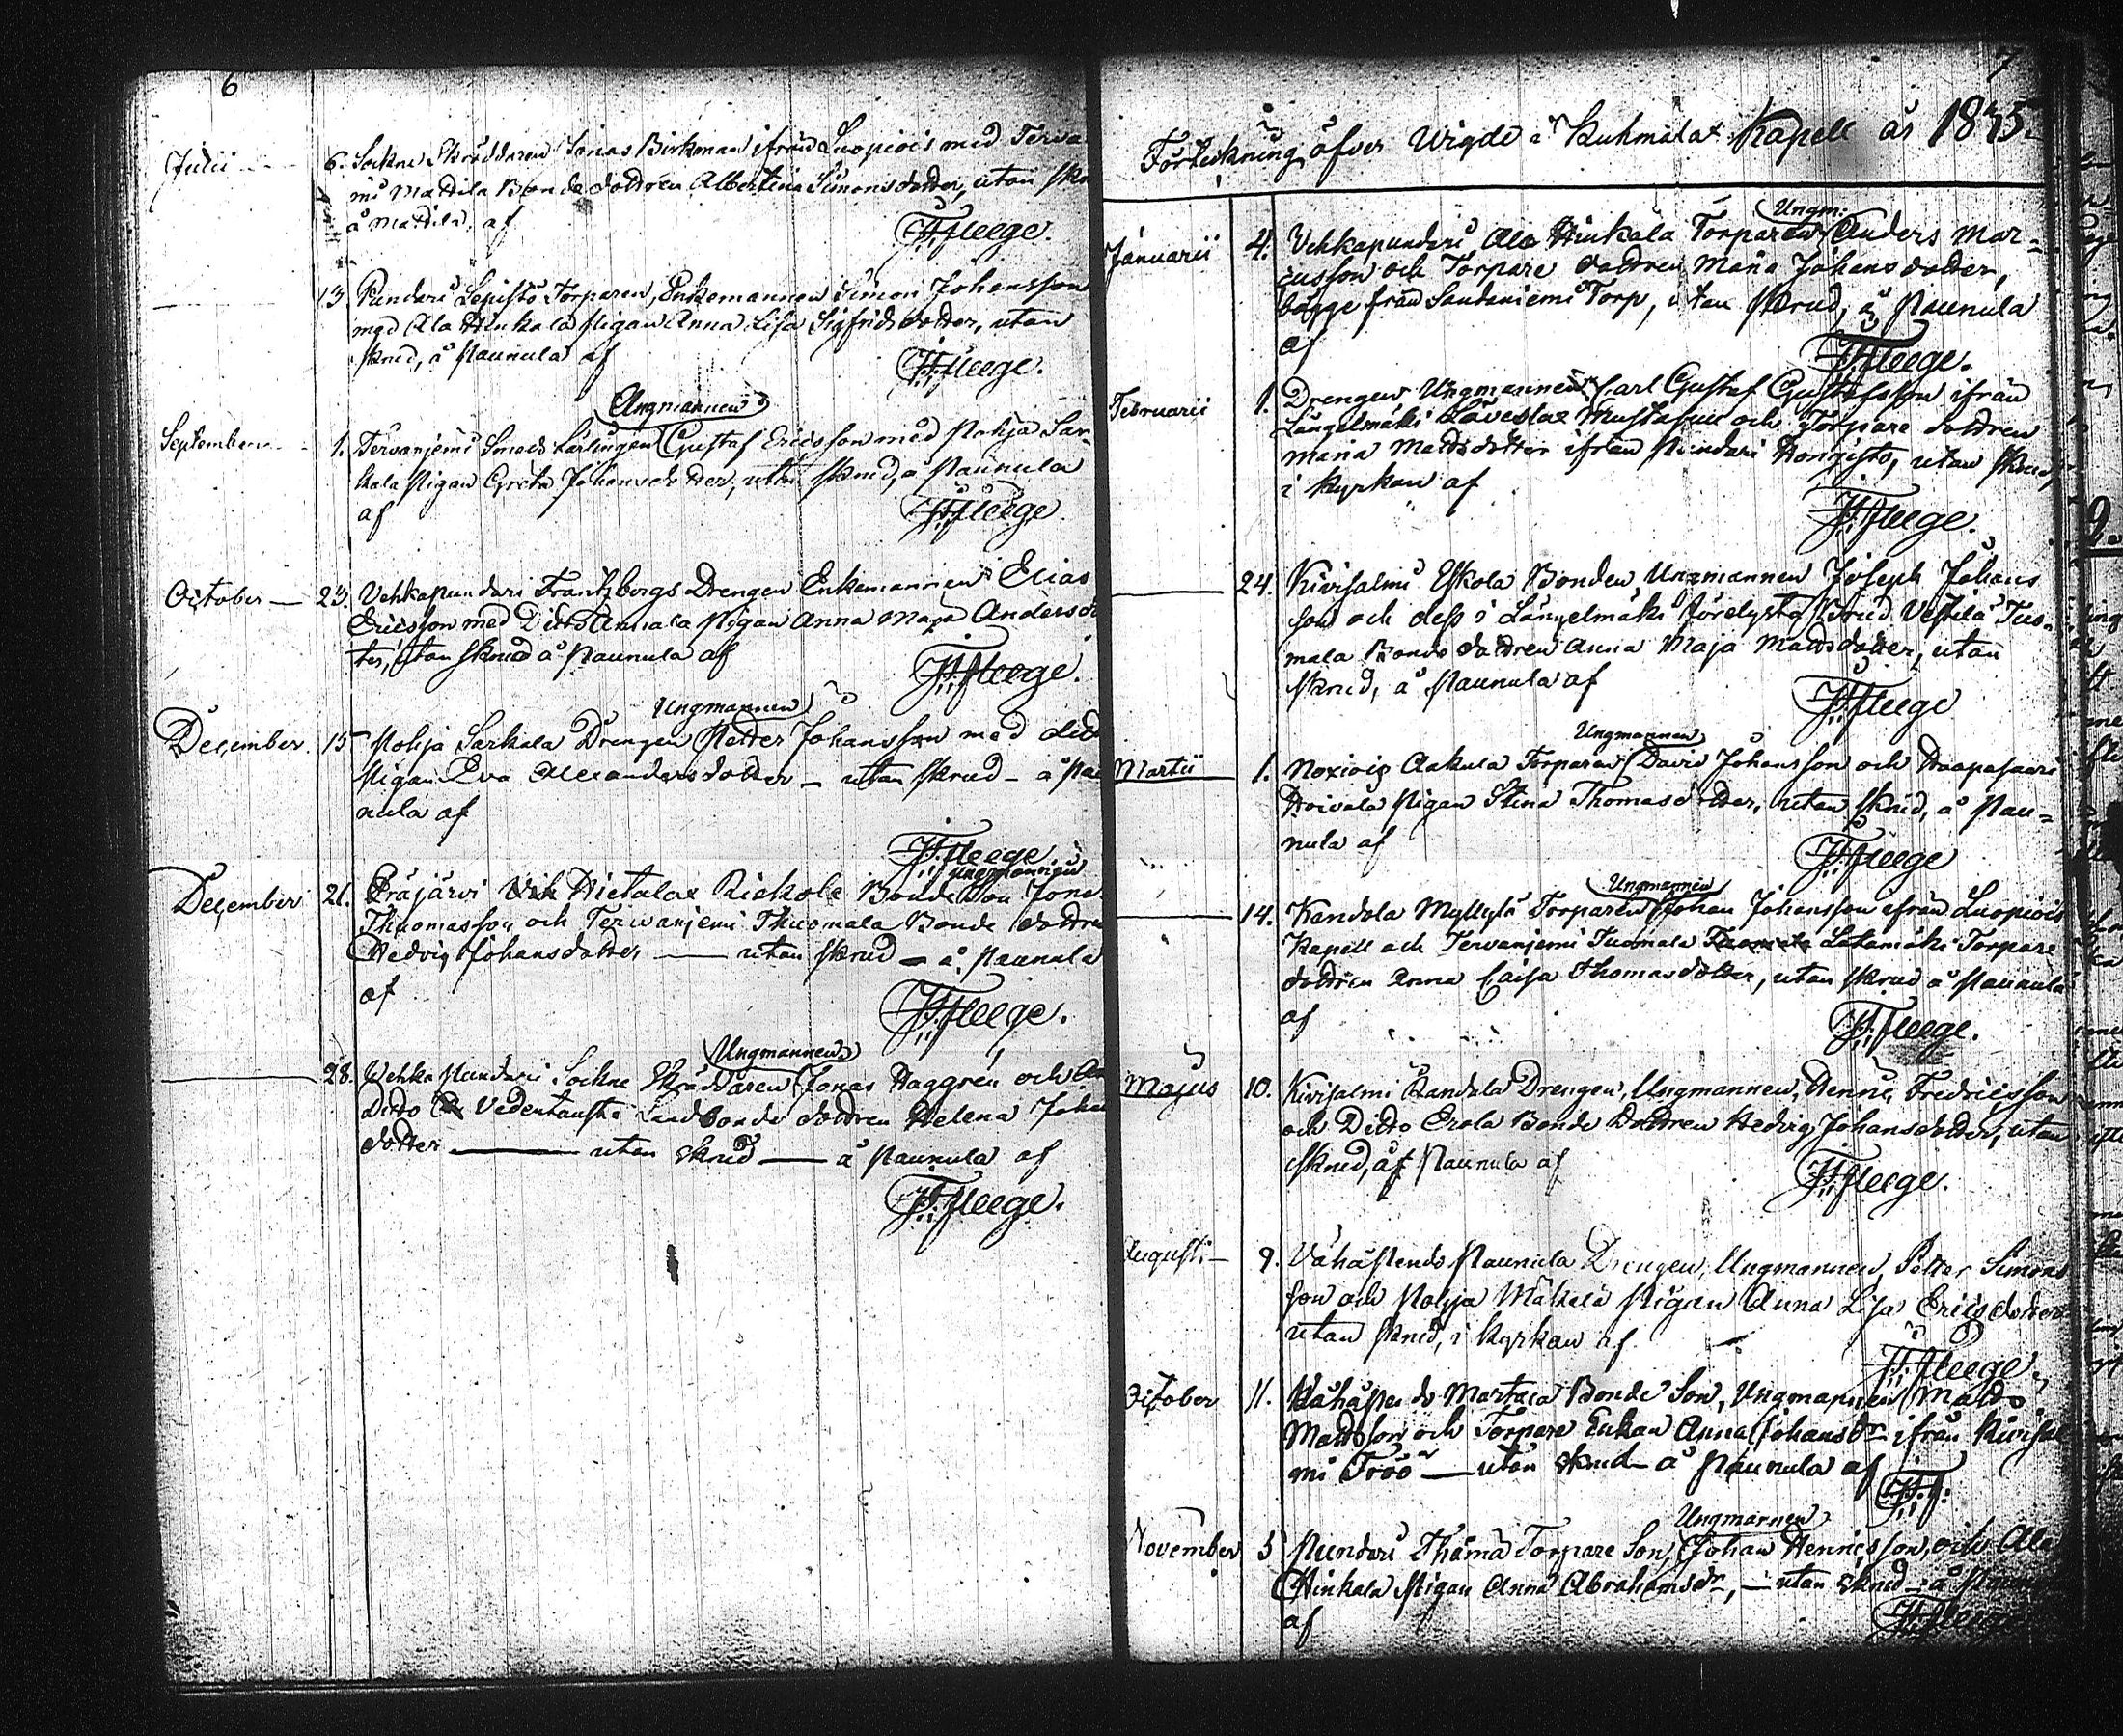 6
Julii 6. Sockne Skräddaren Jonas Birkman ifrån Luopiois med Terva
mi Mattila Bonde dottren Albertina Simonsdotter, utan skru
å Mattila, af
Fleege.
13 Pundari Lepistö Torparen, Enkemannen Simon Johansson
med Ala Hinkala Pigan Anna Lisa Sigfridsdotter, utan
skrud, å Paunula af
Fleege.
Ungmannen
September 1. Tervanjemi Smeds Lärlingen Gustaf Ericsson med Pohja Sar-
kala Pigan Greta Johansdotter, utan skrud, å Paunula
af
Fleege
October 23. Vehkapundari Frantzbergs Drengen Enkemannen Elias
Ericsson med Ditto Annala Pigan Anna Maja Andersdo
ter, utan skrud å Paunula af
Fleege.
Ungmannen
December 15 Pohja Sarkala Drengen Petter Johansson med dito
Pigan Eva Alexandersdotter - utan skrud - å Pau
nula af
Fleege.
Ungmannen
December 21. Eräjärvi Hietalax Riekola Bonde Son Jona
Thuomasson och Terwanjemi Thuomala Bonde dottre
Hedvig Johansdotter — utan skrud - å Paunula
af
Fleege.
Ungmannen
28. Vehka Pundari Sockne Skräddaren Jonas Haggrén och
Ditto Vedentausta Landbonde dottren Helena Joha
dotter — utan skrud — å Paunula af
Fleege.
7
Förteckning öfver Wigde i Kuhmalax Kapell år 1835.
Ungm:
Januarii 4. Vehkapundari Ala Hinkala Torparen Anders Mar=
cusson och Torpare dottren Maria Johansdotter,
bägge från Santaniemi Torp, utan skrud, å Paunula
af
Fleege.
Februarii 1. Drengen Ungmannen Carl Gustaf Gustafsson ifrån
Längelmäki Löveslax Mustasuu och Torpare dottren
Maria Mattsdotter ifrån Pundari Hongisto, utan skrud,
i Kyrkan af
Fleege.
24. Kivisalmi Eskola Bonden Ungmannen Joseph Johans
son och dess i Längelmäki förelysta Brud Vestilä Tuo-
mala Bonde dottren Anna Maja Mattsdotter, utan
skrud, å Paunula af
Fleege
Ungmannen
Martii 1. Aakula Torparen David Johansson och Haapasaari
Hoivala Pigan Stina Thomasdotter, utan skrud, å Pau=
nula af
Fleege
Ungmannen
14. Kandola Myllylä Torparen Johan Johansson ifrån Luopiois
Kapell och Tervanjemi Tuomala Latamäki Torpare
dottren Anna Caisa Thomasdotter, utan skrud å Paunula
af
Fleege.
Majus 10. Kivisalmi Kandola Drengen, Ungmannen, Henric Fredricsson
och Ditto Erola Bonde Dottren Hedvig Johansdotter, utan
skrud, å Paunula af
Fleege.
Augusti - 9. Vähäpento Paunula Drengen, Ungmannen, Petter Simons
son och Pohja Mäkelä Pigan Anna Lisa Ericsdotter
utan skrud, i Kyrkan af
Fleege.
October 11. Vähäpento Marttila Bonde Son, Ungmannen Matts
Mattsson och Torpare Enkan Anna Johansdr ifrån Kivisal
mi — utan skrud - å Paunula af
F.
Ungmannen
November 5 Pundari Torpare Son, Johan Hennicsson, och Ala
Hinkala Pigan Anna Abrahamsdr, — utan skrud - å Paunu
af
Fleege